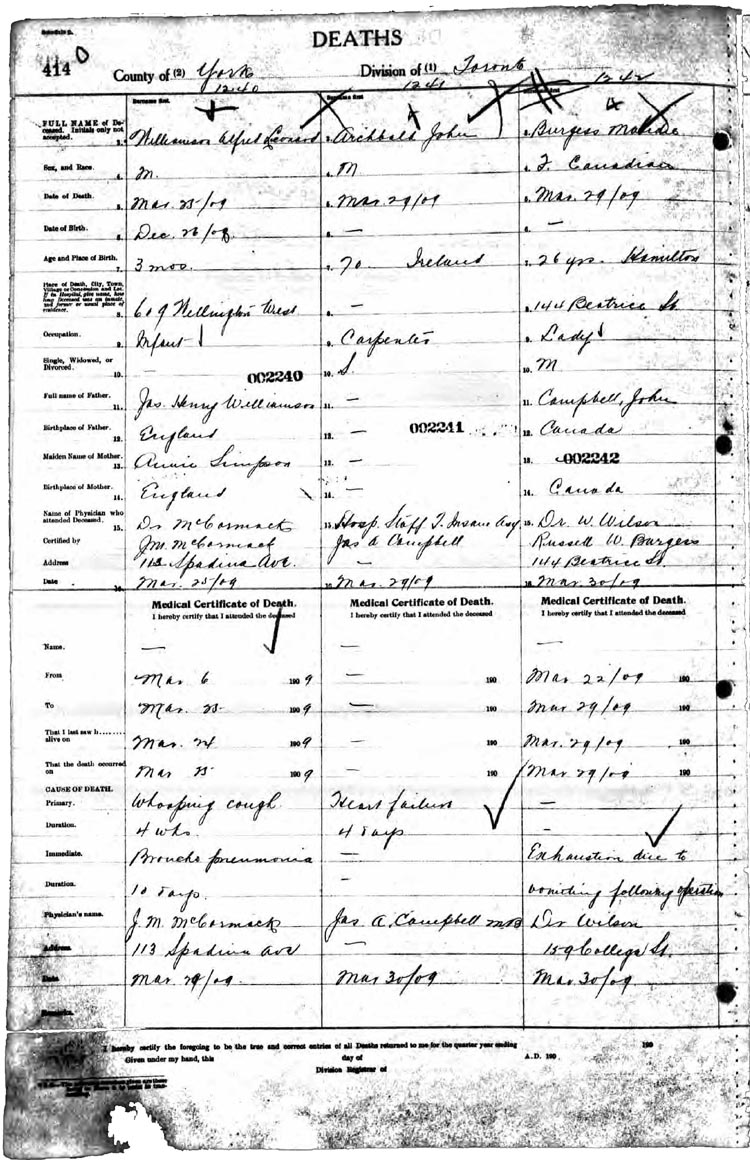 Schedule C.
DEATHS
414
County of (2) York Division of (1) Toronto
1240 1241 1242
Surname first. Surname first. Surname first.
FULL NAME of Deceased. Initials only not accepted. 3. Williamson Alfred Leonard 3. Archbald John 3. Burgess
Sex, and Race. 4. M. 4. M 4. F. Canadian
Date of Death. 5. Mar. 25/09 5. Mar. 29/09 5. Mar. 29/09
Date of Birth. 6. Dec. 26/08. 6. — 6. —
Age and Place of Birth. 7. 3 mos. 7. 70 Ireland 7. 26 yrs. Hamilton
Place of Death, City, Town, Village or Concession and Lot. If in Hospital, give name, how long deceased was an inmate, and former or usual place of residence. 8. 609 Wellington West 8. — 8. 144 Beatrice St.
Occupation. 9. Infant 9. Carpenter 9. Lady
Single, Widowed, or Divorced. 10. — 002240 10. S. 10. M
Full name of Father. 11. Jas. Henry Williamson 11. — 11. Campbell, John
Birthplace of Father. 12. England 12. — 002241 12. Canada
Maiden Name of Mother. 13. Annie Simpson 13. — 13. 002242
Birthplace of Mother. 14. England 14. — 14. Canada
Name of Physician who attended Deceased. 15. Dr McCormack 15. Hosp. Staff T. Insane Asy 15. Dr. W. Wilson
Certified by J.M. McCormack Jas A Campbell Russell W. Burgess
Address 113 Spadina Ave. 144 Beatrice St.
Date 16. Mar. 25/09 16. Mar. 29/09 16. Mar. 30/09
Medical Certificate of Death. Medical Certificate of Death. Medical Certificate of Death.
I hereby certify that I attended the deceased I hereby certify that I attended the deceased I hereby certify that I attended the deceased
Name. — — —
From Mar 6 1909 — 190 Mar 22/09 190
To Mar. 25 1909 — 190 Mar 29/09 190
That I last saw h........ alive on Mar. 24 1909 — 190 Mar. 29/09 190
That the death occurred on Mar 25 1909 — 190 Mar 29/09 190
CAUSE OF DEATH.
Primary. Whooping cough. Heart failure —
Duration. 4 wks. 4 days —
Immediate. Broncho pneumonia — Exhaustion due to
Duration. 10 days. — vomiting following operation
Physician's name. J. M. McCormack Jas A. Campbell MB Dr Wilson
Address 113 Spadina Ave — 159 College St.
Date Mar 29/09 Mar 30/09 Mar 30/09
Remarks.
I hereby certify the foregoing to be the true and correct entries of all Deaths returned to me for the quarter year ending 190
Given under my hand, this day of A.D. 190
Division Registrar of